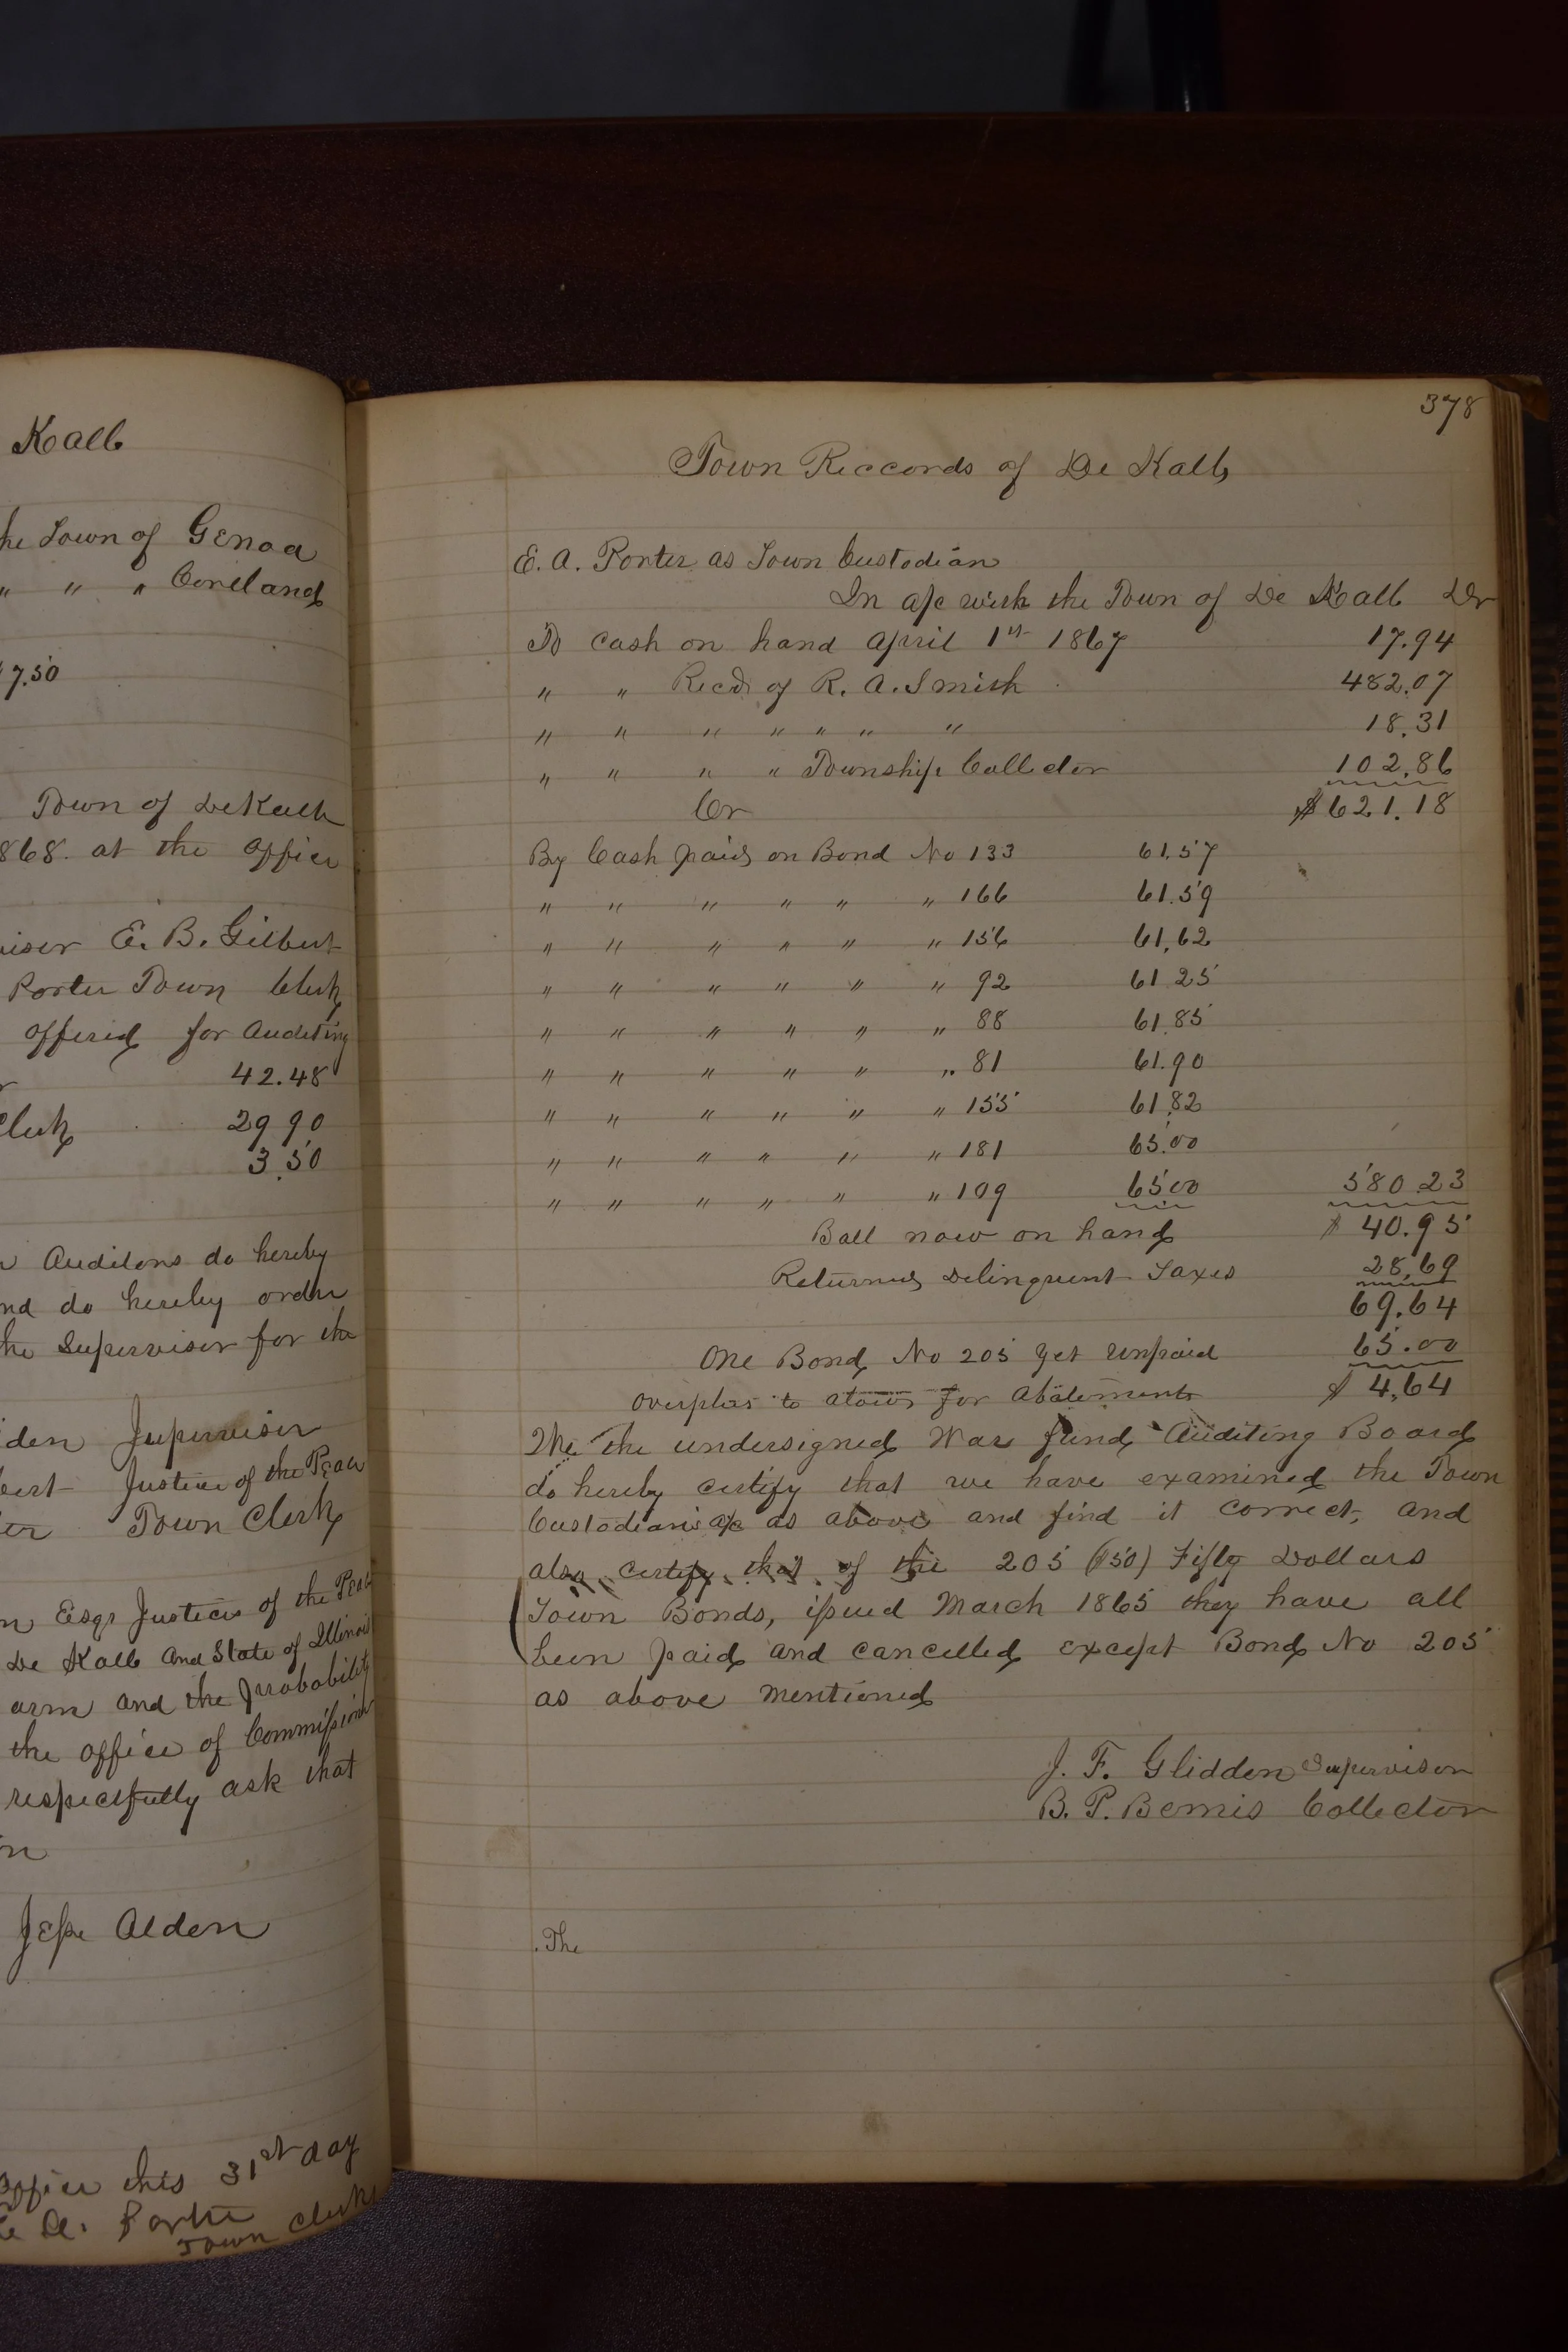 Kalb
he Town of Genoa
" " " Cortland
7.50
Town of DeKalb
868. at the office
visor E. B. Gilbert
Porter Town Clerk
offered for Auditing
42.48
Clerk 29 90
3.50
Auditors do hereby
nd do hereby order
he Supervisor for the
den Supervisor
bert Justice of the Peace
ter Town Clerk
n Esqr Justices of the Peace
De Kalb and State of Illinois
arm and the probability
the office of Commissioner
respectfully ask that
n
Jesse Alden
office this 31st day
E. A. Porter
Town Clerk
378
Town Reccords of De Kalb
E. A. Porter as Town Custodian
In a/c with the Town of De Kalb Dr
To Cash on hand April 1st 1867 17.94
" " Recd of R. A. Smith 482.07
" " " " " " " 18.31
" " " " Township Collector 102.86
Cr $621.18
By Cash paid on Bond No 133 61.57
" " " " " " 166 61.59
" " " " " " 156 61.62
" " " " " " 92 61 25
" " " " " " 88 61.85
" " " " " " 81 61.90
" " " " " " 155 61.82
" " " " " " 181 65.00
" " " " " " 109 65 00 580.23
Ball now on hand $ 40.95
Returned Delinquent Taxes 28.69
69.64
One Bond No 205 yet unpaid 65.00
overplus to atows for Abatements $ 4.64
We the undersigned War fund Auditing Board
do hereby certify that we have examined the Town
Custodians a/c as above and find it correct, and
also certify that of the 205 ($50) Fifty Dollars
Town Bonds, issued March 1865 they have all
been paid and cancelled except Bond No 205
as above mentioned
J. F. Glidden Supervisor
B. P. Bemis Collector
The